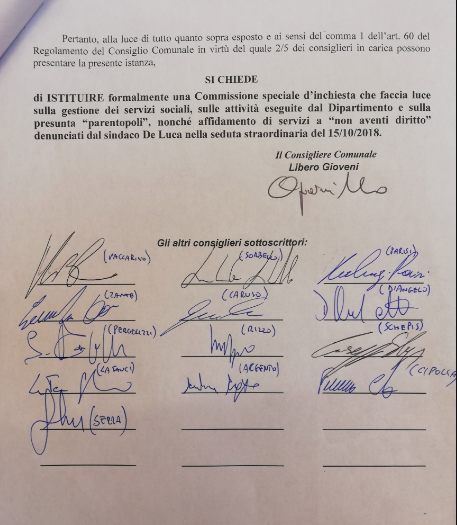 Pertanto, alla luce di tutto quanto sopra esposto e ai sensi del comma 1 dell'art. 60 del
Regolamento del Consiglio Comunale in virtù del quale 2/5 dei consiglieri in carica possono
presentare la presente istanza,
SI CHIEDE
di ISTITUIRE formalmente una Commissione speciale d'inchiesta che faccia luce
sulla gestione dei servizi sociali, sulle attività eseguite dal Dipartimento e sulla
presunta "parentopoli", nonché affidamento di servizi a "non aventi diritto"
denunciati dal sindaco De Luca nella seduta straordinaria del 15/10/2018.
Il Consigliere Comunale
Libero Gioveni
Gli altri consiglieri sottoscrittori:
(VACCARINO) (SORBELLO) (PARISI)
(ZANTE) (CARUSO) (D'ANGELO)
(PERGOLIZZI) (RIZZO) (SCHEPIS)
(LA FAUCI) (ARGENTO) (CIPOLLA)
(SERRA)